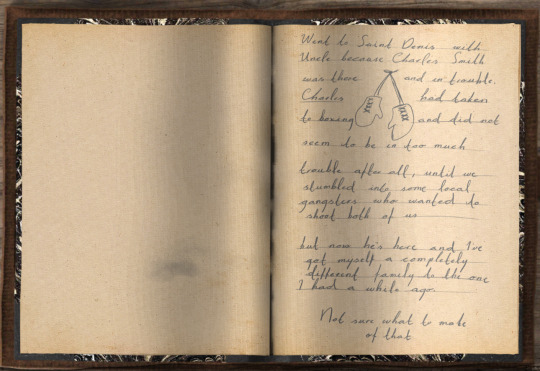 Went to Saint Denis with
Uncle because Charles Smith
was there and in trouble.
Charles had taken
to boxing and did not
seem to be in too much
trouble after all, until we
stumbled into some local
gangsters who wanted to
shoot both of us
but now he's here and I've
got myself a completely
different family to the one
I had a while ago.
Not sure what to make
of that